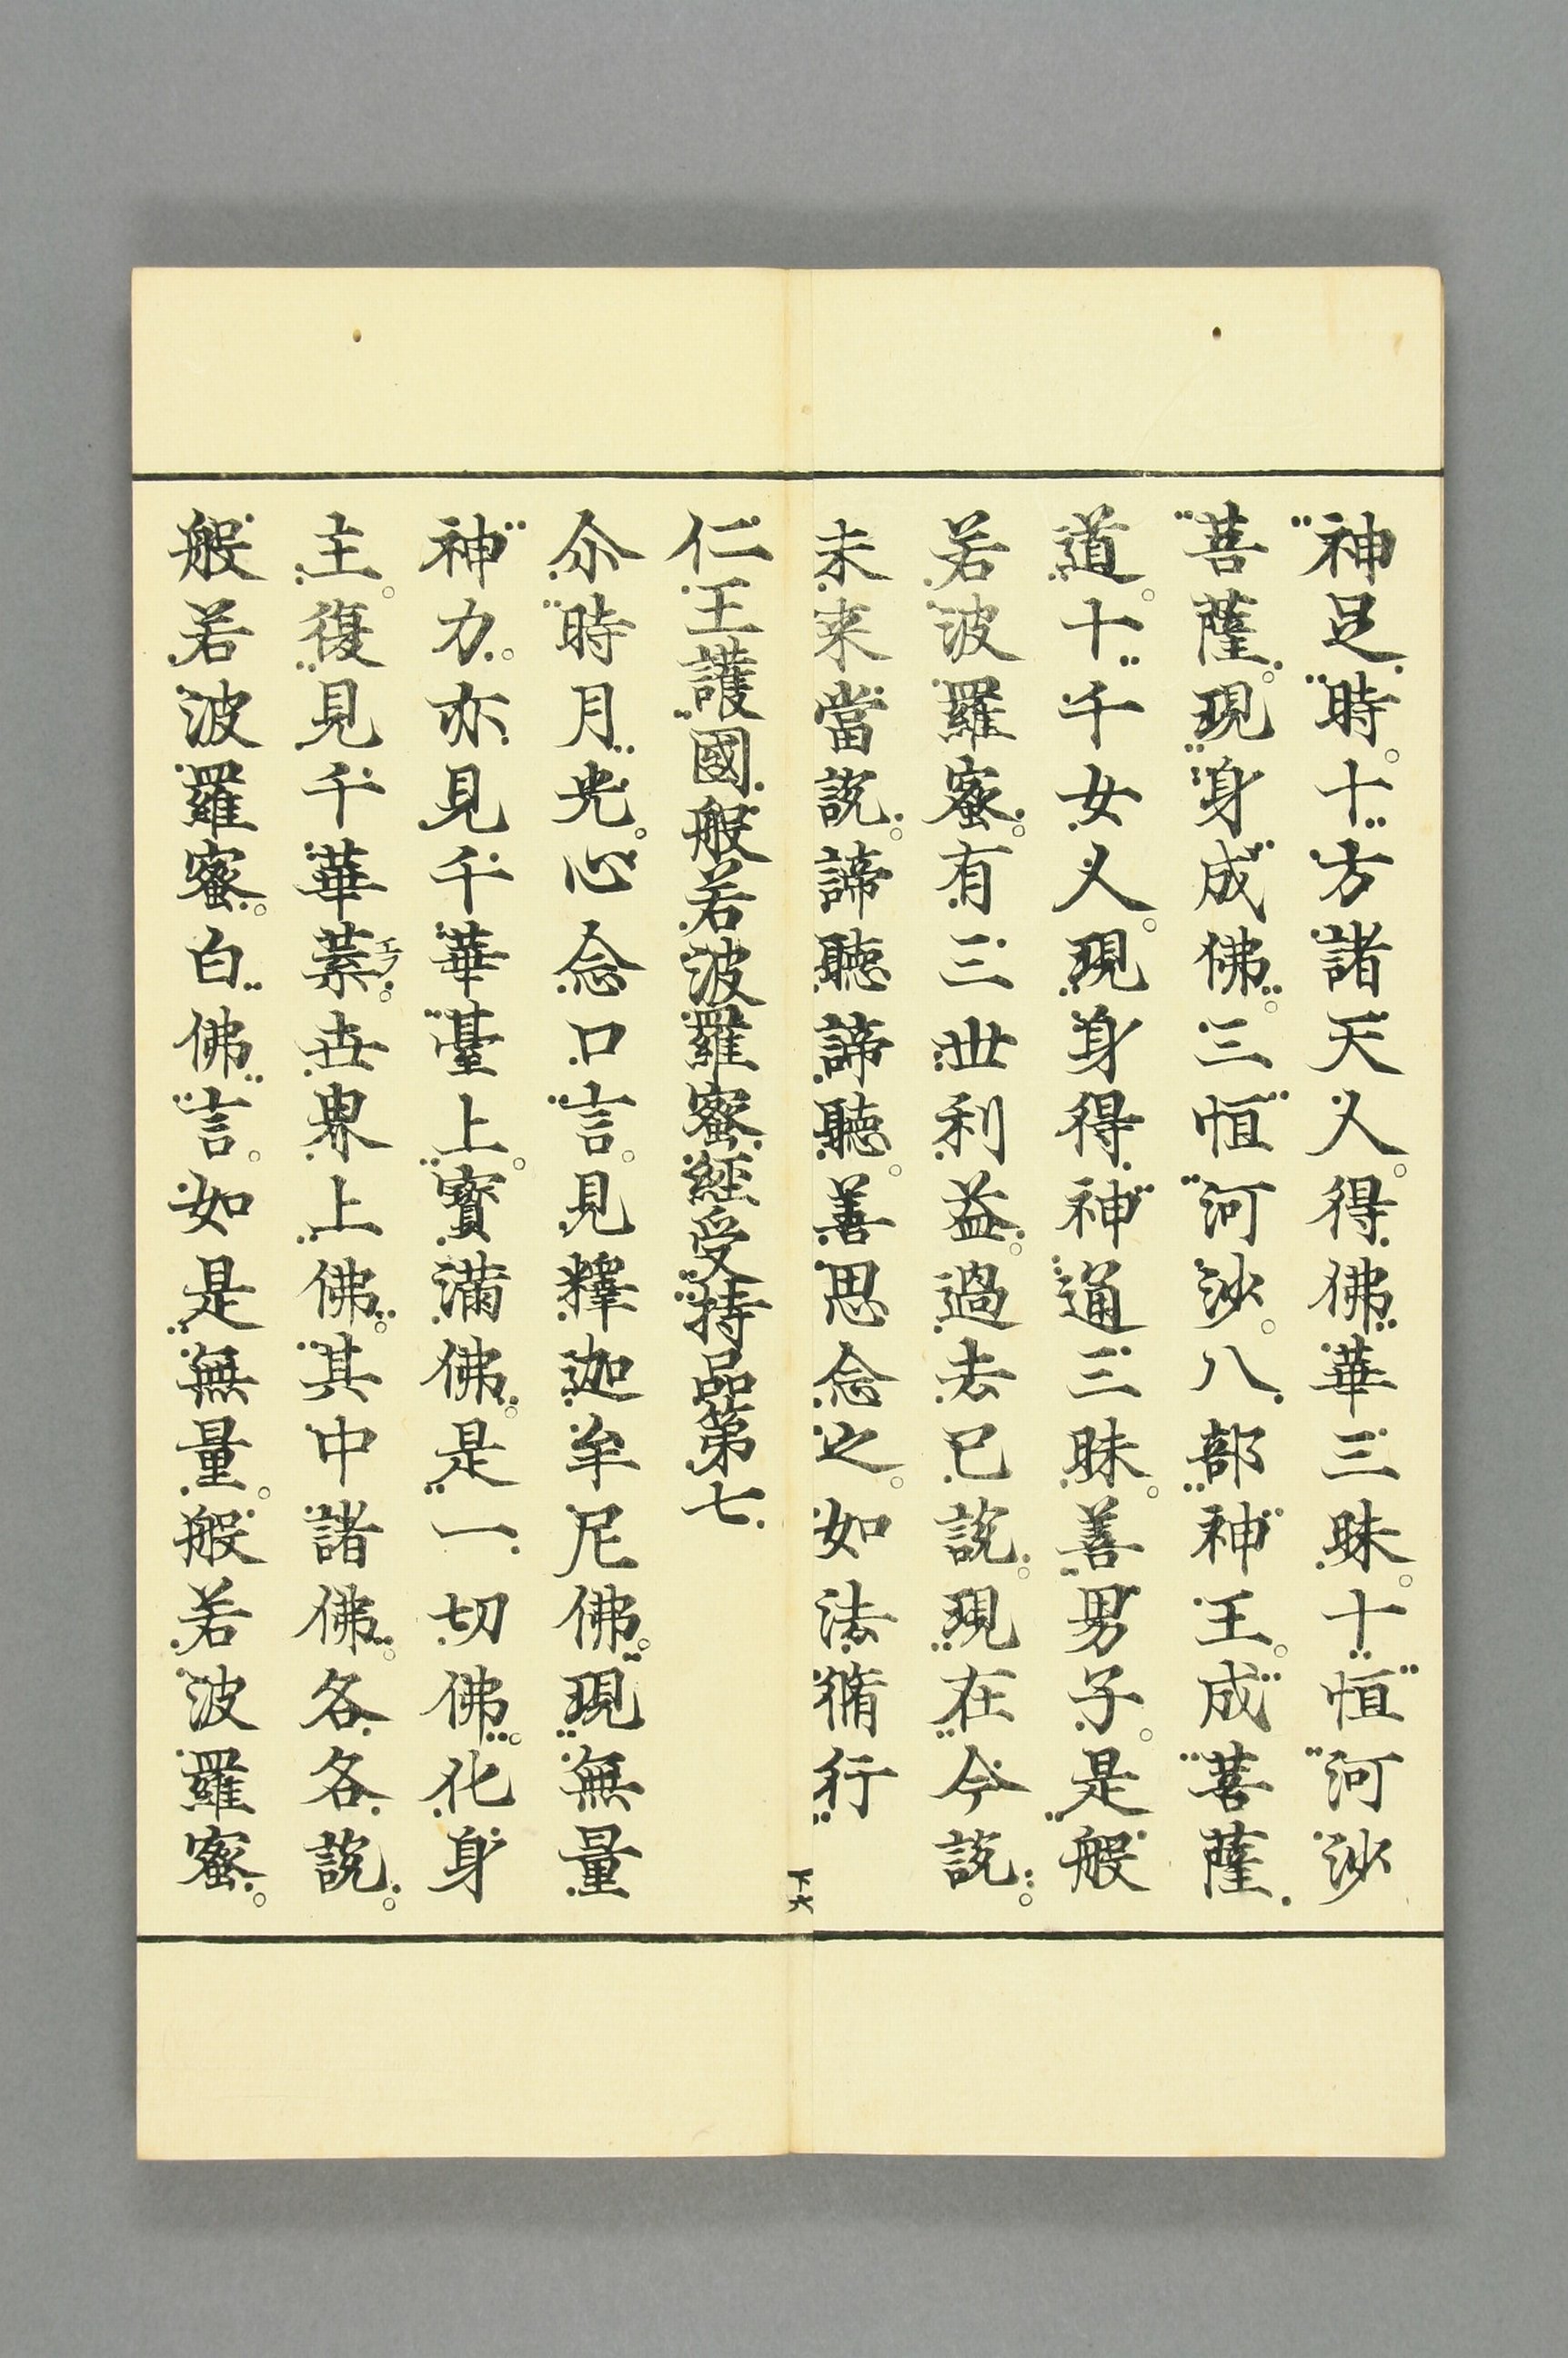 神足時。十方諸天人。得佛華三昧。十恒河沙
菩薩。現身成佛。三恒河沙。八部神王。成菩薩
道。十千女人。現身得神通三昧。善男子。是般
若波羅蜜。有三世利益。過去已說。現在今說。
未来當說。諦聽諦聽。善思念之。如法脩行
下六
仁王護國般若波羅蜜經受持品第七
尒時月光。心念口言。見釋迦牟尼佛。現無量
神力。亦見千華臺上。寶滿佛。是一切佛。化身
主。復見千華葉。世界上佛。其中諸佛。各各說。
エフ
般若波羅蜜。白佛言。如是無量。般若波羅蜜。